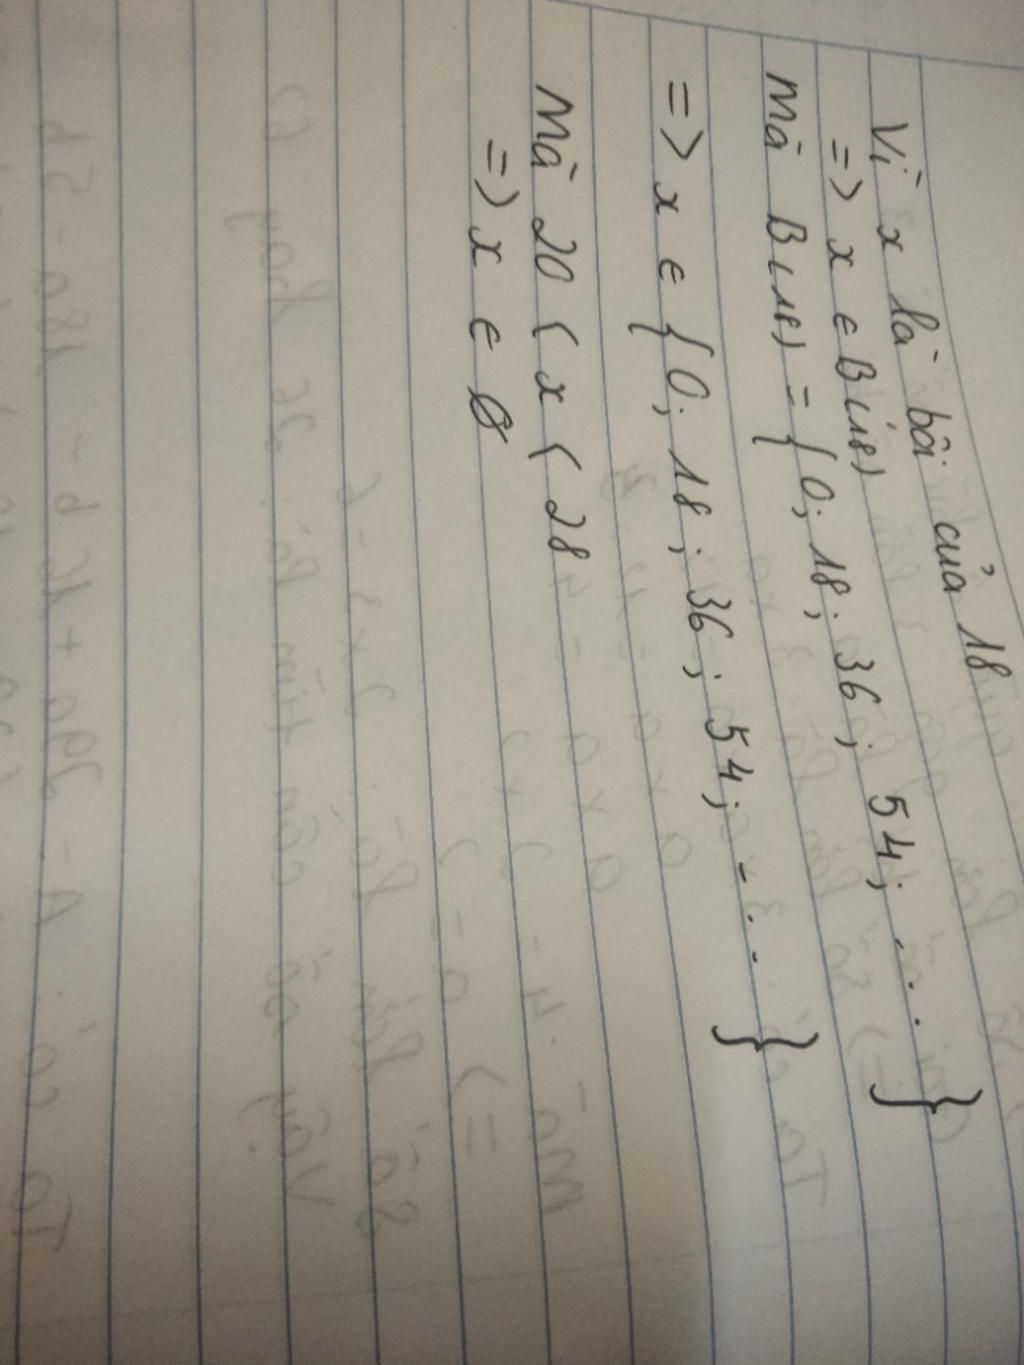 Vì x là bôi của 18
=> x ∈ B(18)
mà B(18) = {0; 18; 36; 54; ... }
=> x ∈ {0; 18; 36; 54; ... }
Mà 20 < x < 28
=> x ∈ Ø